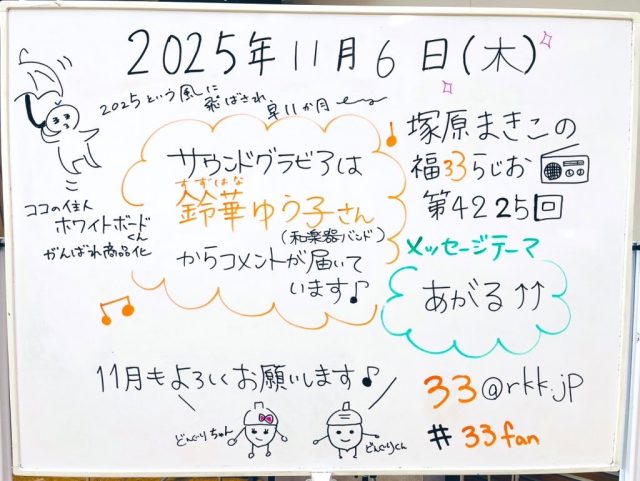 2025年11月6日(木)
2025という風に
飛ばされ
早11か月
ココの住人
ホワイトボード
くん
がんばれ商品化
サウンドグラビ3は
すずはな
鈴華ゆう子さん
(和楽器バンド)
からコメントが届いて
います♪
塚原まきこの
福33らじお
第4225回
メッセージテーマ
あがる↑↑
11月もよろしくお願いします♪
どんぐりちゃん
どんぐりくん
33@rkk.jp
#33fan